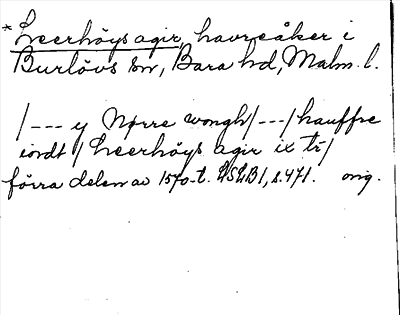 *Leerhöys agir, havreåker i
Burlövs sn, Bara hd, Malm. l.
/--- y Nørre wongh/---/hauffre
iordt/Leerhöys agir ix tr/
förra delen av 1570-t. LSLB1, s.471. orig.